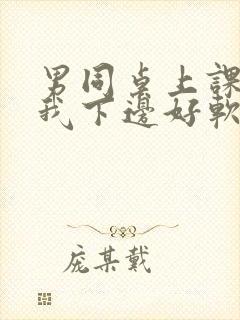 男同桌上課
我下邊好軟
庞某戴